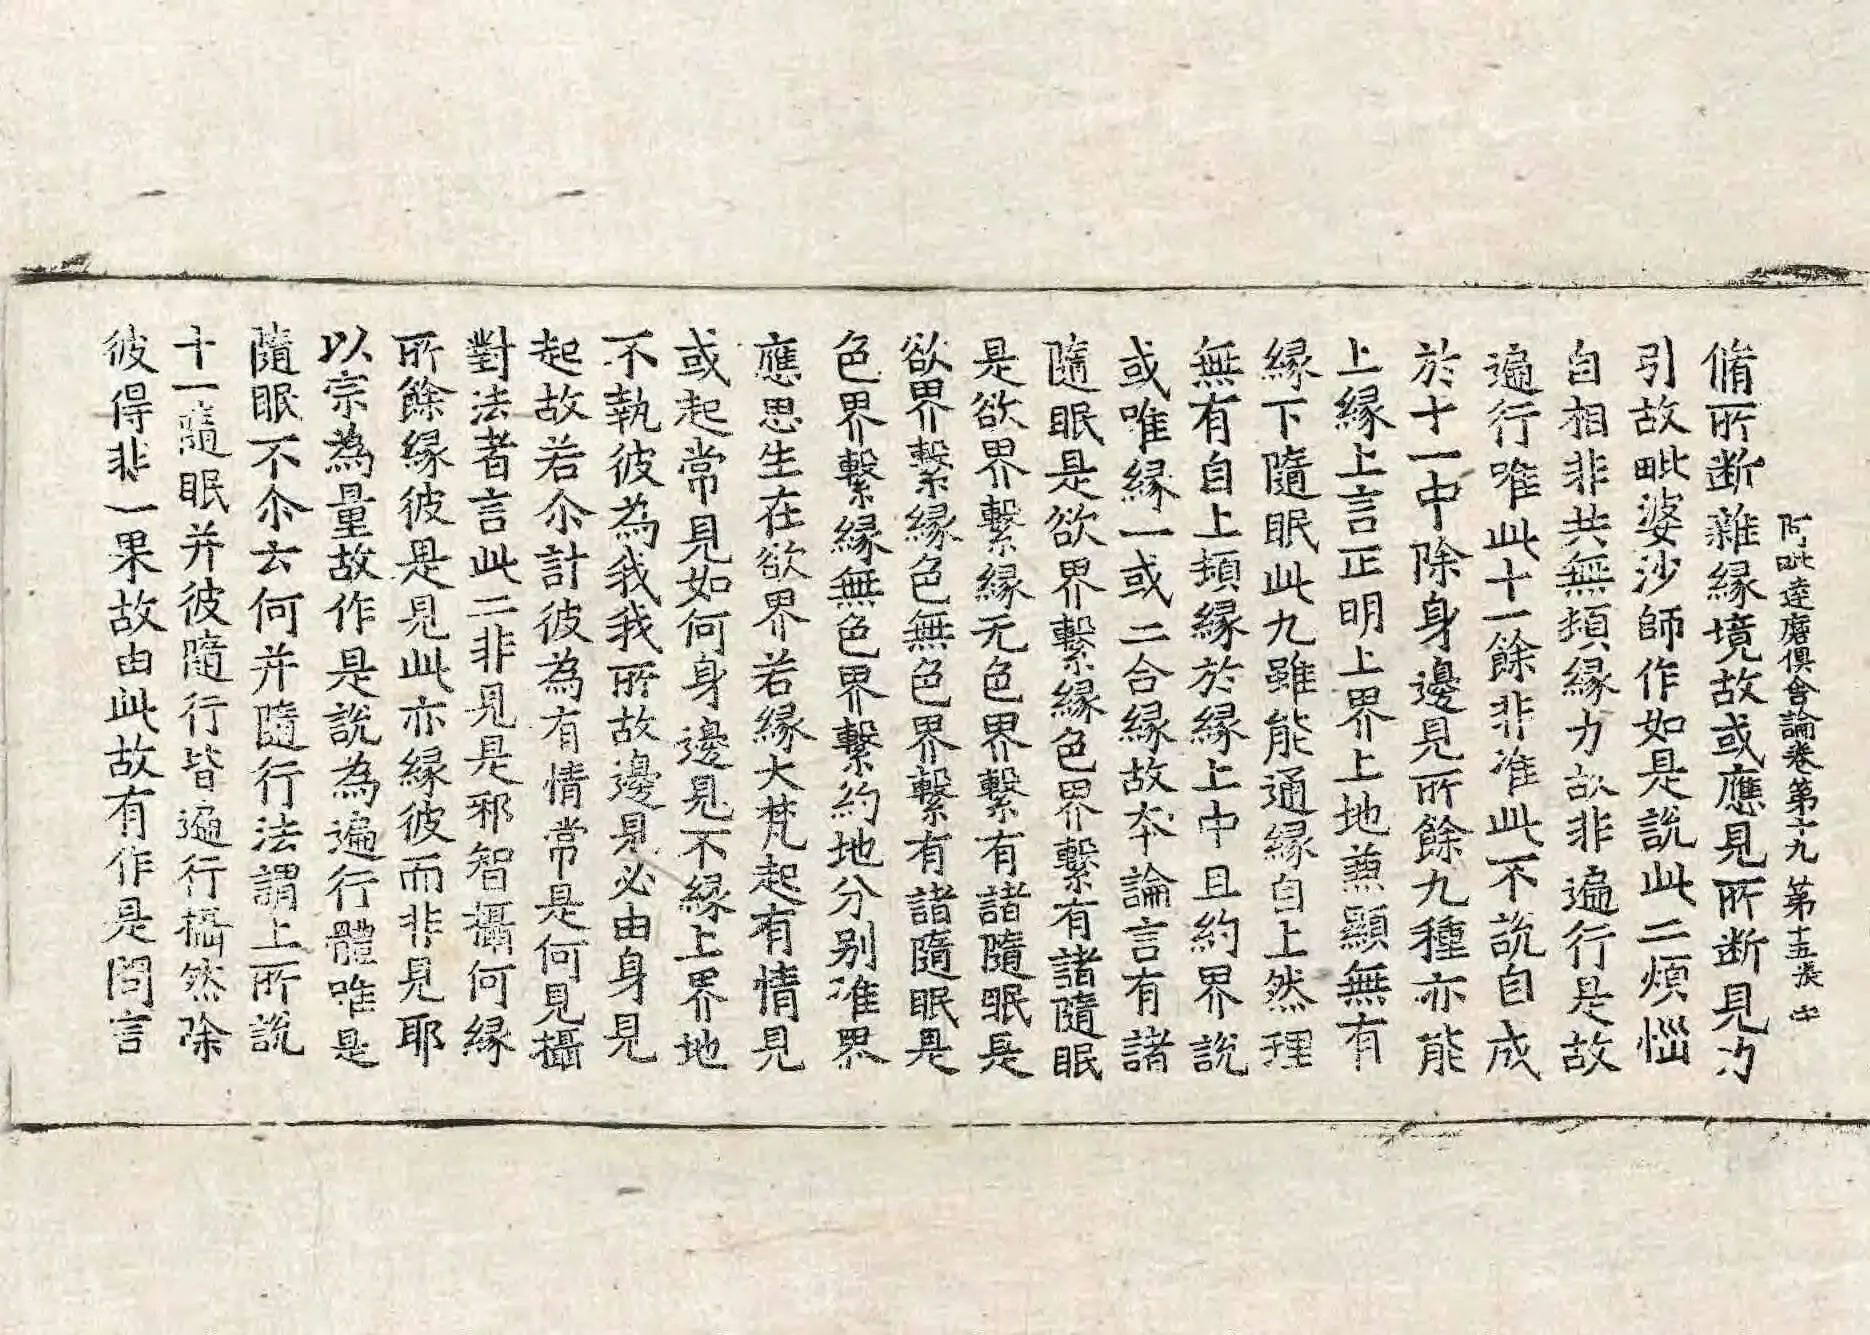 阿毗達磨俱舍論卷第十九 第十五張
脩所斷雜緣境故或應見所斷見力
引故毗婆沙師作如是說此二煩惱
自相非共無頓緣力故非遍行是故
遍行唯此十一餘非准此不說自成
於十一中除身邊見所餘九種亦能
上緣上言正明上界上地兼顯無有
緣下隨眠此九雖能通緣自上然理
無有自上頓緣於緣上中且約界說
或唯緣一或二合緣故本論言有諸
隨眠是欲界繫緣色界繫有諸隨眠
是欲界繫緣无色界繫有諸隨眠是
欲界繫緣色無色界繫有諸隨眠是
色界繫緣無色界繫約地分別准界
應思生在欲界若緣大梵起有情見
或起常見如何身邊見不緣上界地
不執彼為我我所故邊見必由身見
起故若尒計彼為有情常是何見攝
對法者言此二非見是邪智攝何緣
所餘緣彼是見此亦緣彼而非見耶
以宗為量故作是說為遍行體唯是
隨眠不尒云何并隨行法謂上所說
十一隨眠并彼隨行皆遍行攝然除
彼得非一果故由此故有作是問言